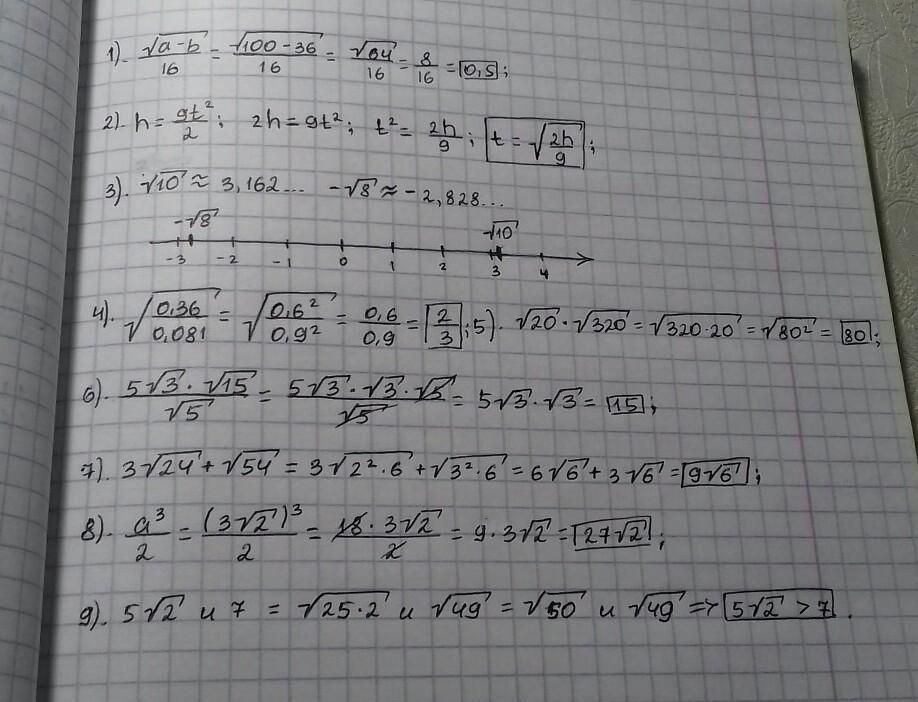 1). √(a-b)/16 = √(100-36)/16 = √64/16 = 8/16 = 0,5;
2). h = gt²/2; 2h = gt²; t² = 2h/g; t = √(2h/g);
3). √10 ≈ 3,162... -√8 ≈ -2,828...
-√8 √10
-3 -2 -1 0 1 2 3 4
4). √(0,36/0,081) = √(0,6²/0,9²) = 0,6/0,9 = 2/3; 5). √20·√320 = √(320·20) = √80² = 80;
6). (5√3·√15)/√5 = (5√3·√3·√5)/√5 = 5√3·√3 = 15;
7). 3√24 + √54 = 3√(2²·6) + √(3²·6) = 6√6 + 3√6 = 9√6;
8). a³/2 = (3√2)³/2 = (18·3√2)/2 = 9·3√2 = 27√2;
9). 5√2 и 7 = √(25·2) и √49 = √50 и √49 => 5√2 > 7.